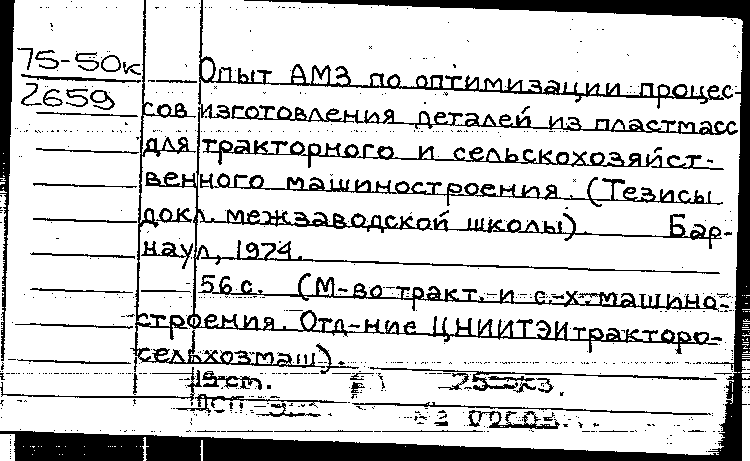 75-50к
2659
Опыт АМЗ по оптимизации процес-
сов изготовления деталей из пластмасс
для тракторного и сельскохозяйст-
венного машиностроения. (Тезисы
докл. межзаводской школы). Бар-
наул, 1974.
56 с. (М-во тракт. и с.-х. машино-
строения. Отд-ние ЦНИИТЭИтракторо-
сельхозмаш).
19 ст. 25 экз.
ДСП